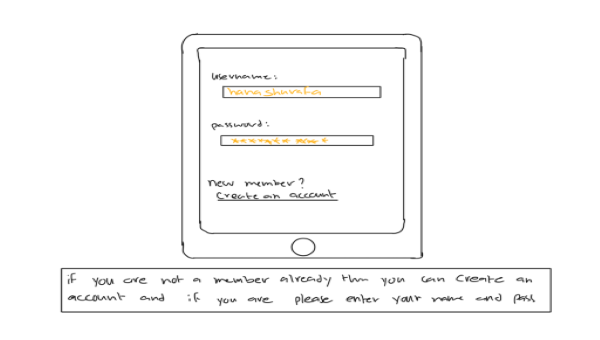 username:
password:
new member?
Create an account
if you are not a member already then you can create an
account and if you are please enter your name and pass